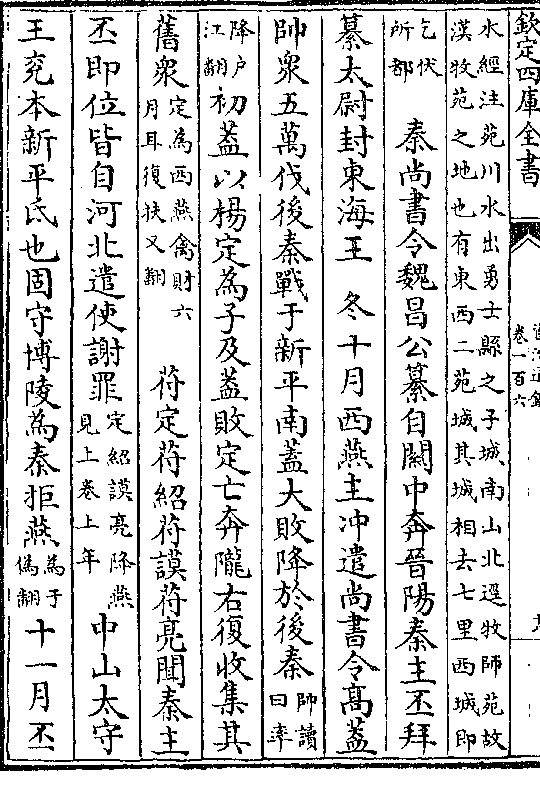 欽定四庫全書
卷一百六
水經注苑川水出勇士縣之子城南山北逕牧師苑故
漢牧苑之地也有東西二苑城其城相去七里西城即
乞伏
所都
秦尚書令魏昌公纂自關中奔晉陽秦主丕拜
纂太尉封東海王 冬十月西燕主冲遣尚書令高蓋
帥衆五萬伐後秦戰于新平南蓋大敗降於後秦
帥讀
曰率
降户
江翻
初蓋以楊定為子及蓋敗定亡奔隴右復收集其
舊衆
定為西燕禽財六
月耳復扶又翻
苻定苻紹苻謨苻亮聞秦主
丕即位皆自河北遣使謝罪
定紹謨亮降燕
見上卷上年
中山太守
王兖本新平氐也固守博陵為秦拒燕
為于
偽翻
十一月丕